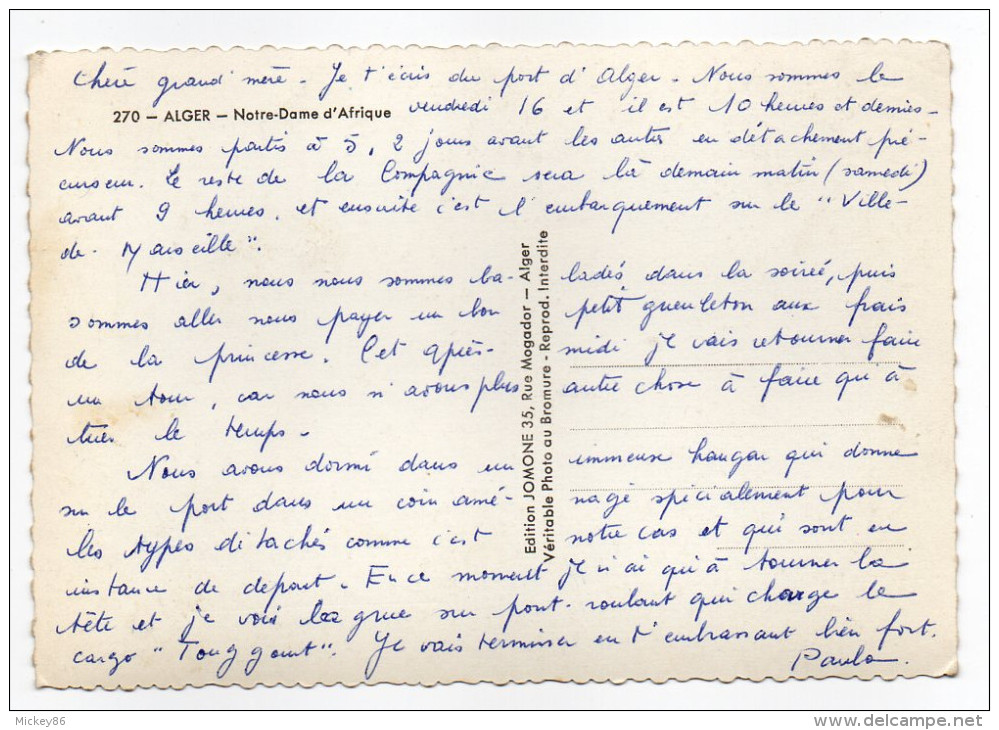 Chère grand'mère - Je t'écris du port d'Alger - Nous sommes le
270 — ALGER — Notre-Dame d'Afrique
vendredi 16 et il est 10 heures et demies -
Nous sommes partis à 5, 2 jours avant les autres en détachement pré-
curseur. Le reste de la Compagnie sera là demain matin (samedi)
avant 9 heures, et ensuite c'est l'embarquement sur le "Ville-
de-Marseille".
Hier, nous nous sommes ba- ladés dans la soirée, puis
sommes aller nous payer un bon petit gueuleton aux frais
de la princesse. Cet après- midi je vais retourner faire
un tour, car nous n'avons plus autre chose à faire qu'à
tuer le temps -
Nous avons dormi dans un immense hangar qui donne
sur le port dans un coin amé- nagé spécialement pour
les types détachés comme c'est notre cas et qui sont en
instance de départ. En ce moment je n'ai qu'à tourner la
tête et je vois la grue sur pont-roulant qui charge le
cargo "Touggourt". Je vais terminer en t'embrassant bien fort.
Paulo.
Edition JOMONE 35, Rue Mogador — Alger
Véritable Photo au Bromure - Reprod. Interdite
Mickey86
delcampe.net